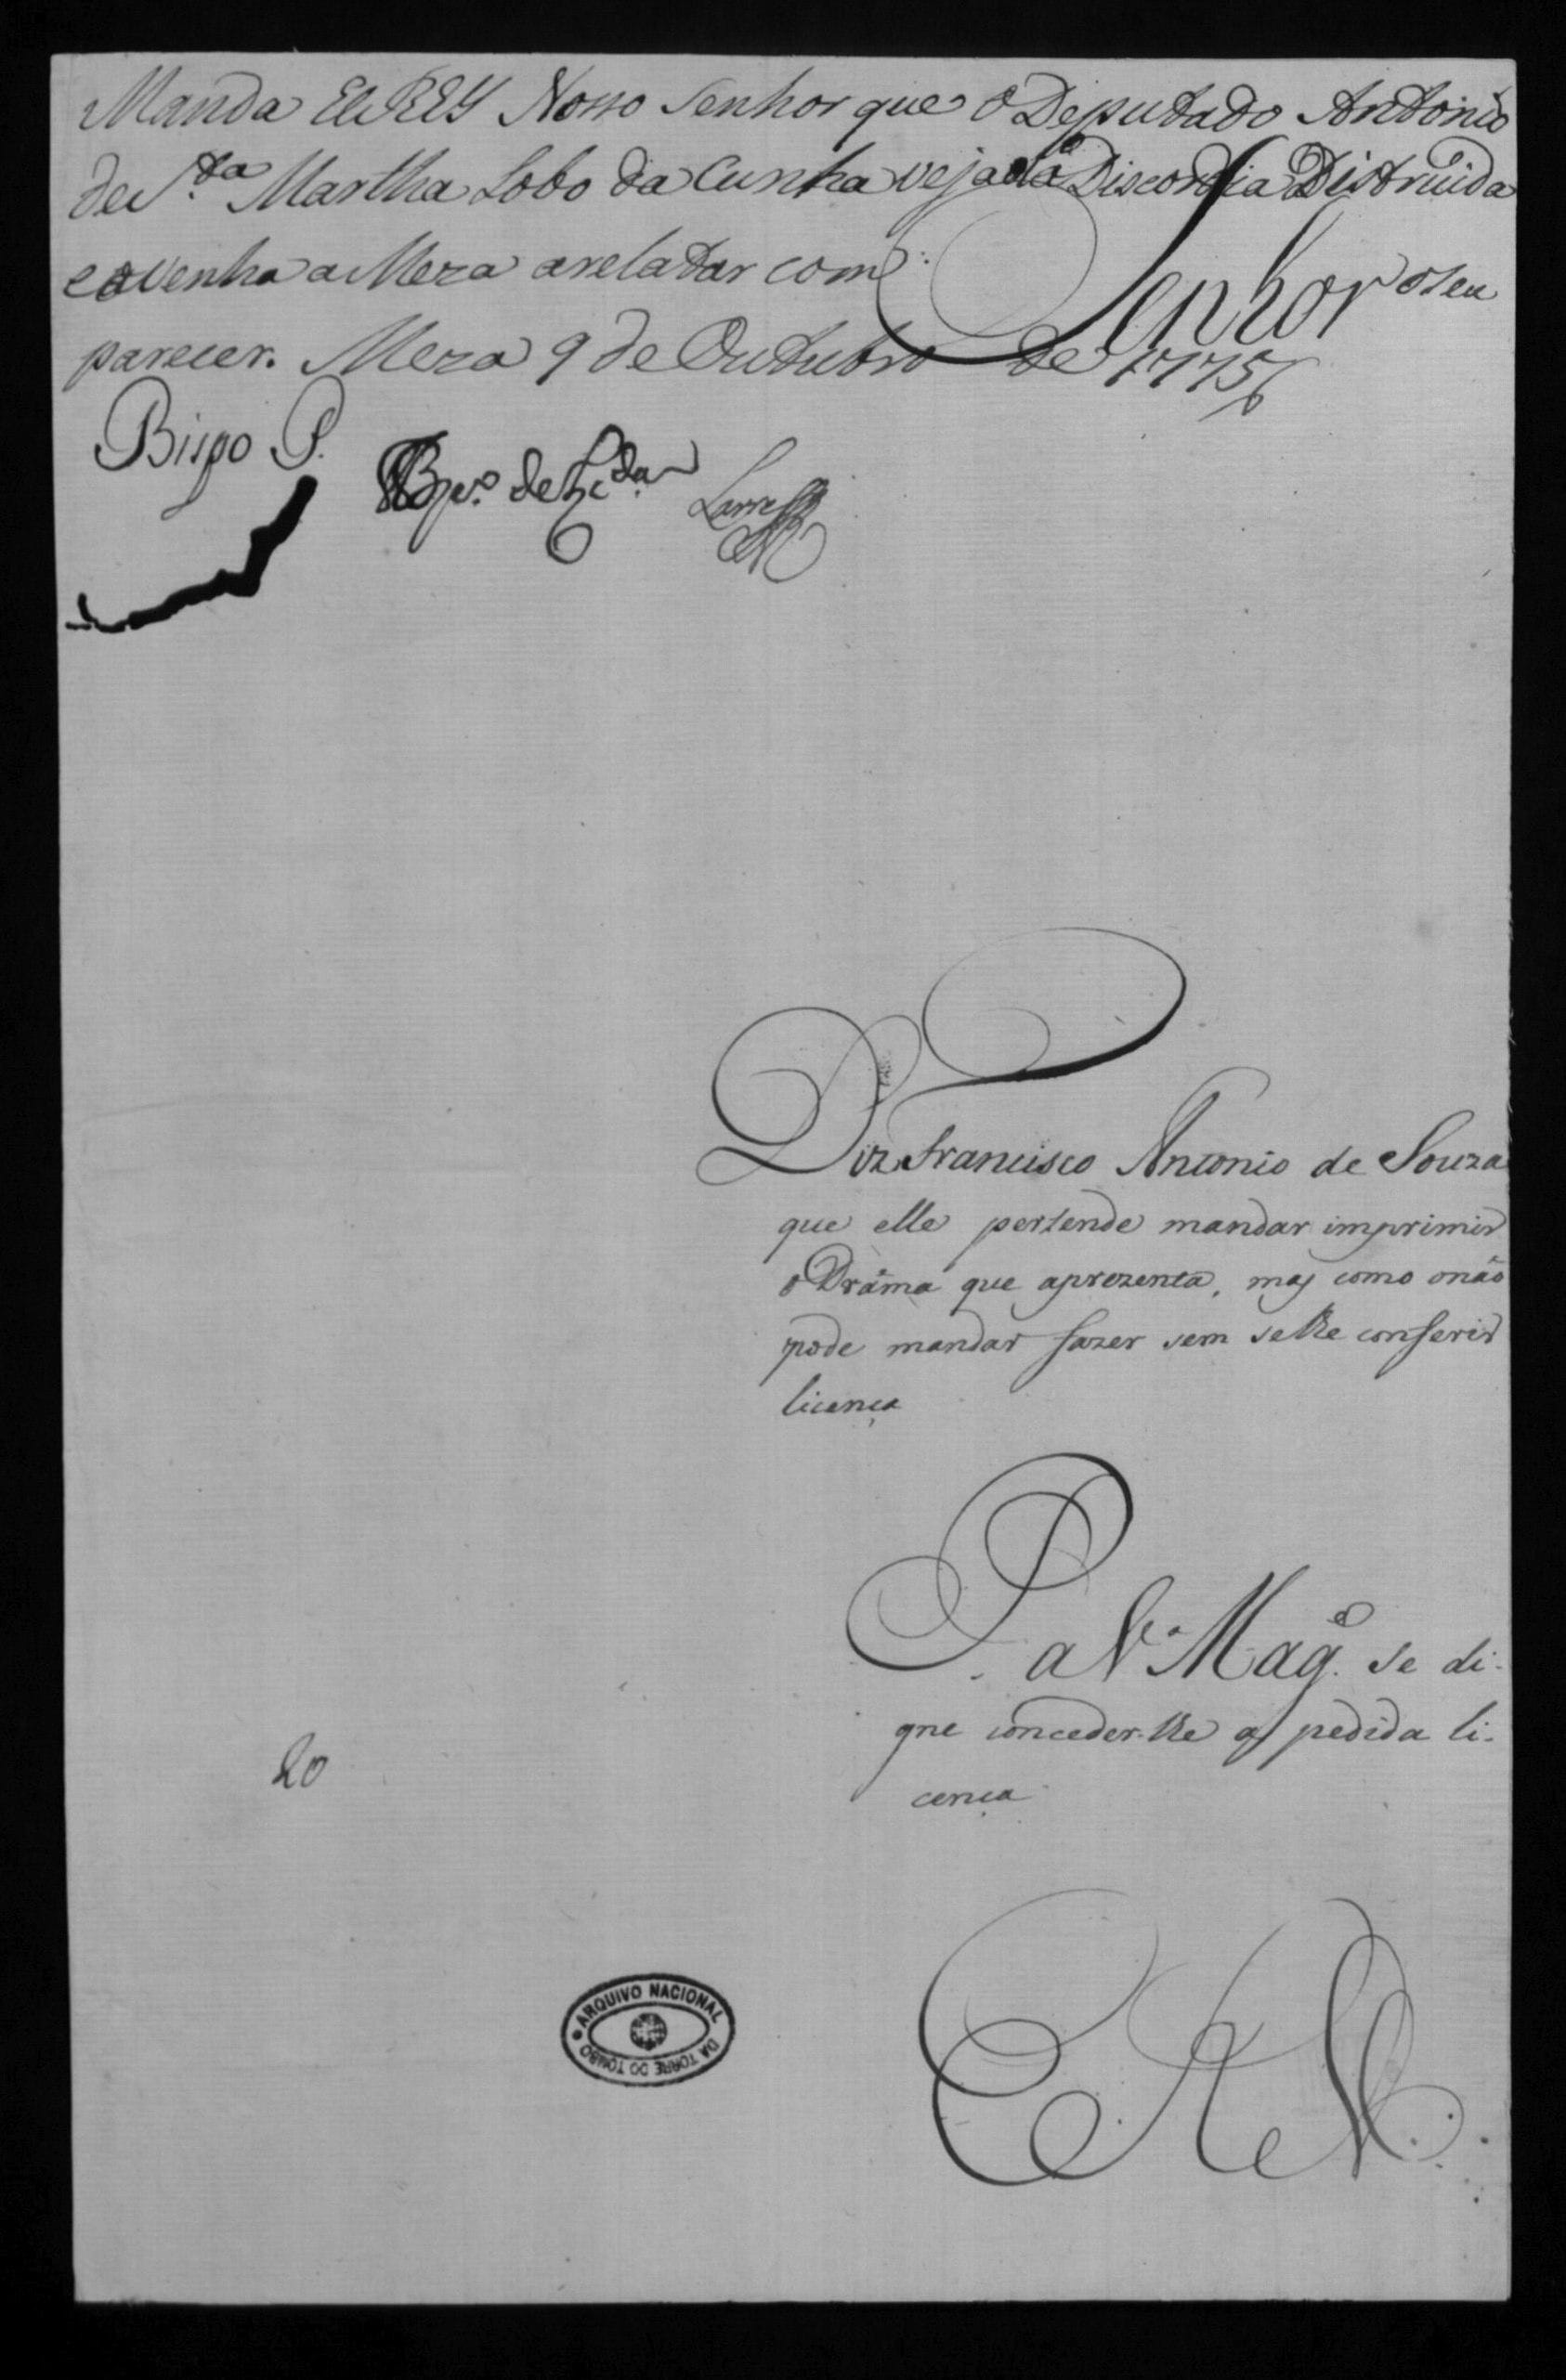 Manda ElREY Nosso Senhor que o Deputado Antonio
de S.ta Martha Lobo da Cunha veja a Discordia Distruida
e venha a Meza a relatar com o seu
Senhor
parecer. Meza 9 de Outubro de 1775
Bispo P.
Diz Francisco Antonio de Souza
que elle pertende mandar imprimir
o Dràma que aprezenta, mas como o não
pode mandar fazer sem se lhe conferir
licença
P. a V.a Mag.e se di-
gne conceder-lhe a pedida li-
cença
20
E R M.
ARQUIVO NACIONAL DA TORRE DO TOMBO